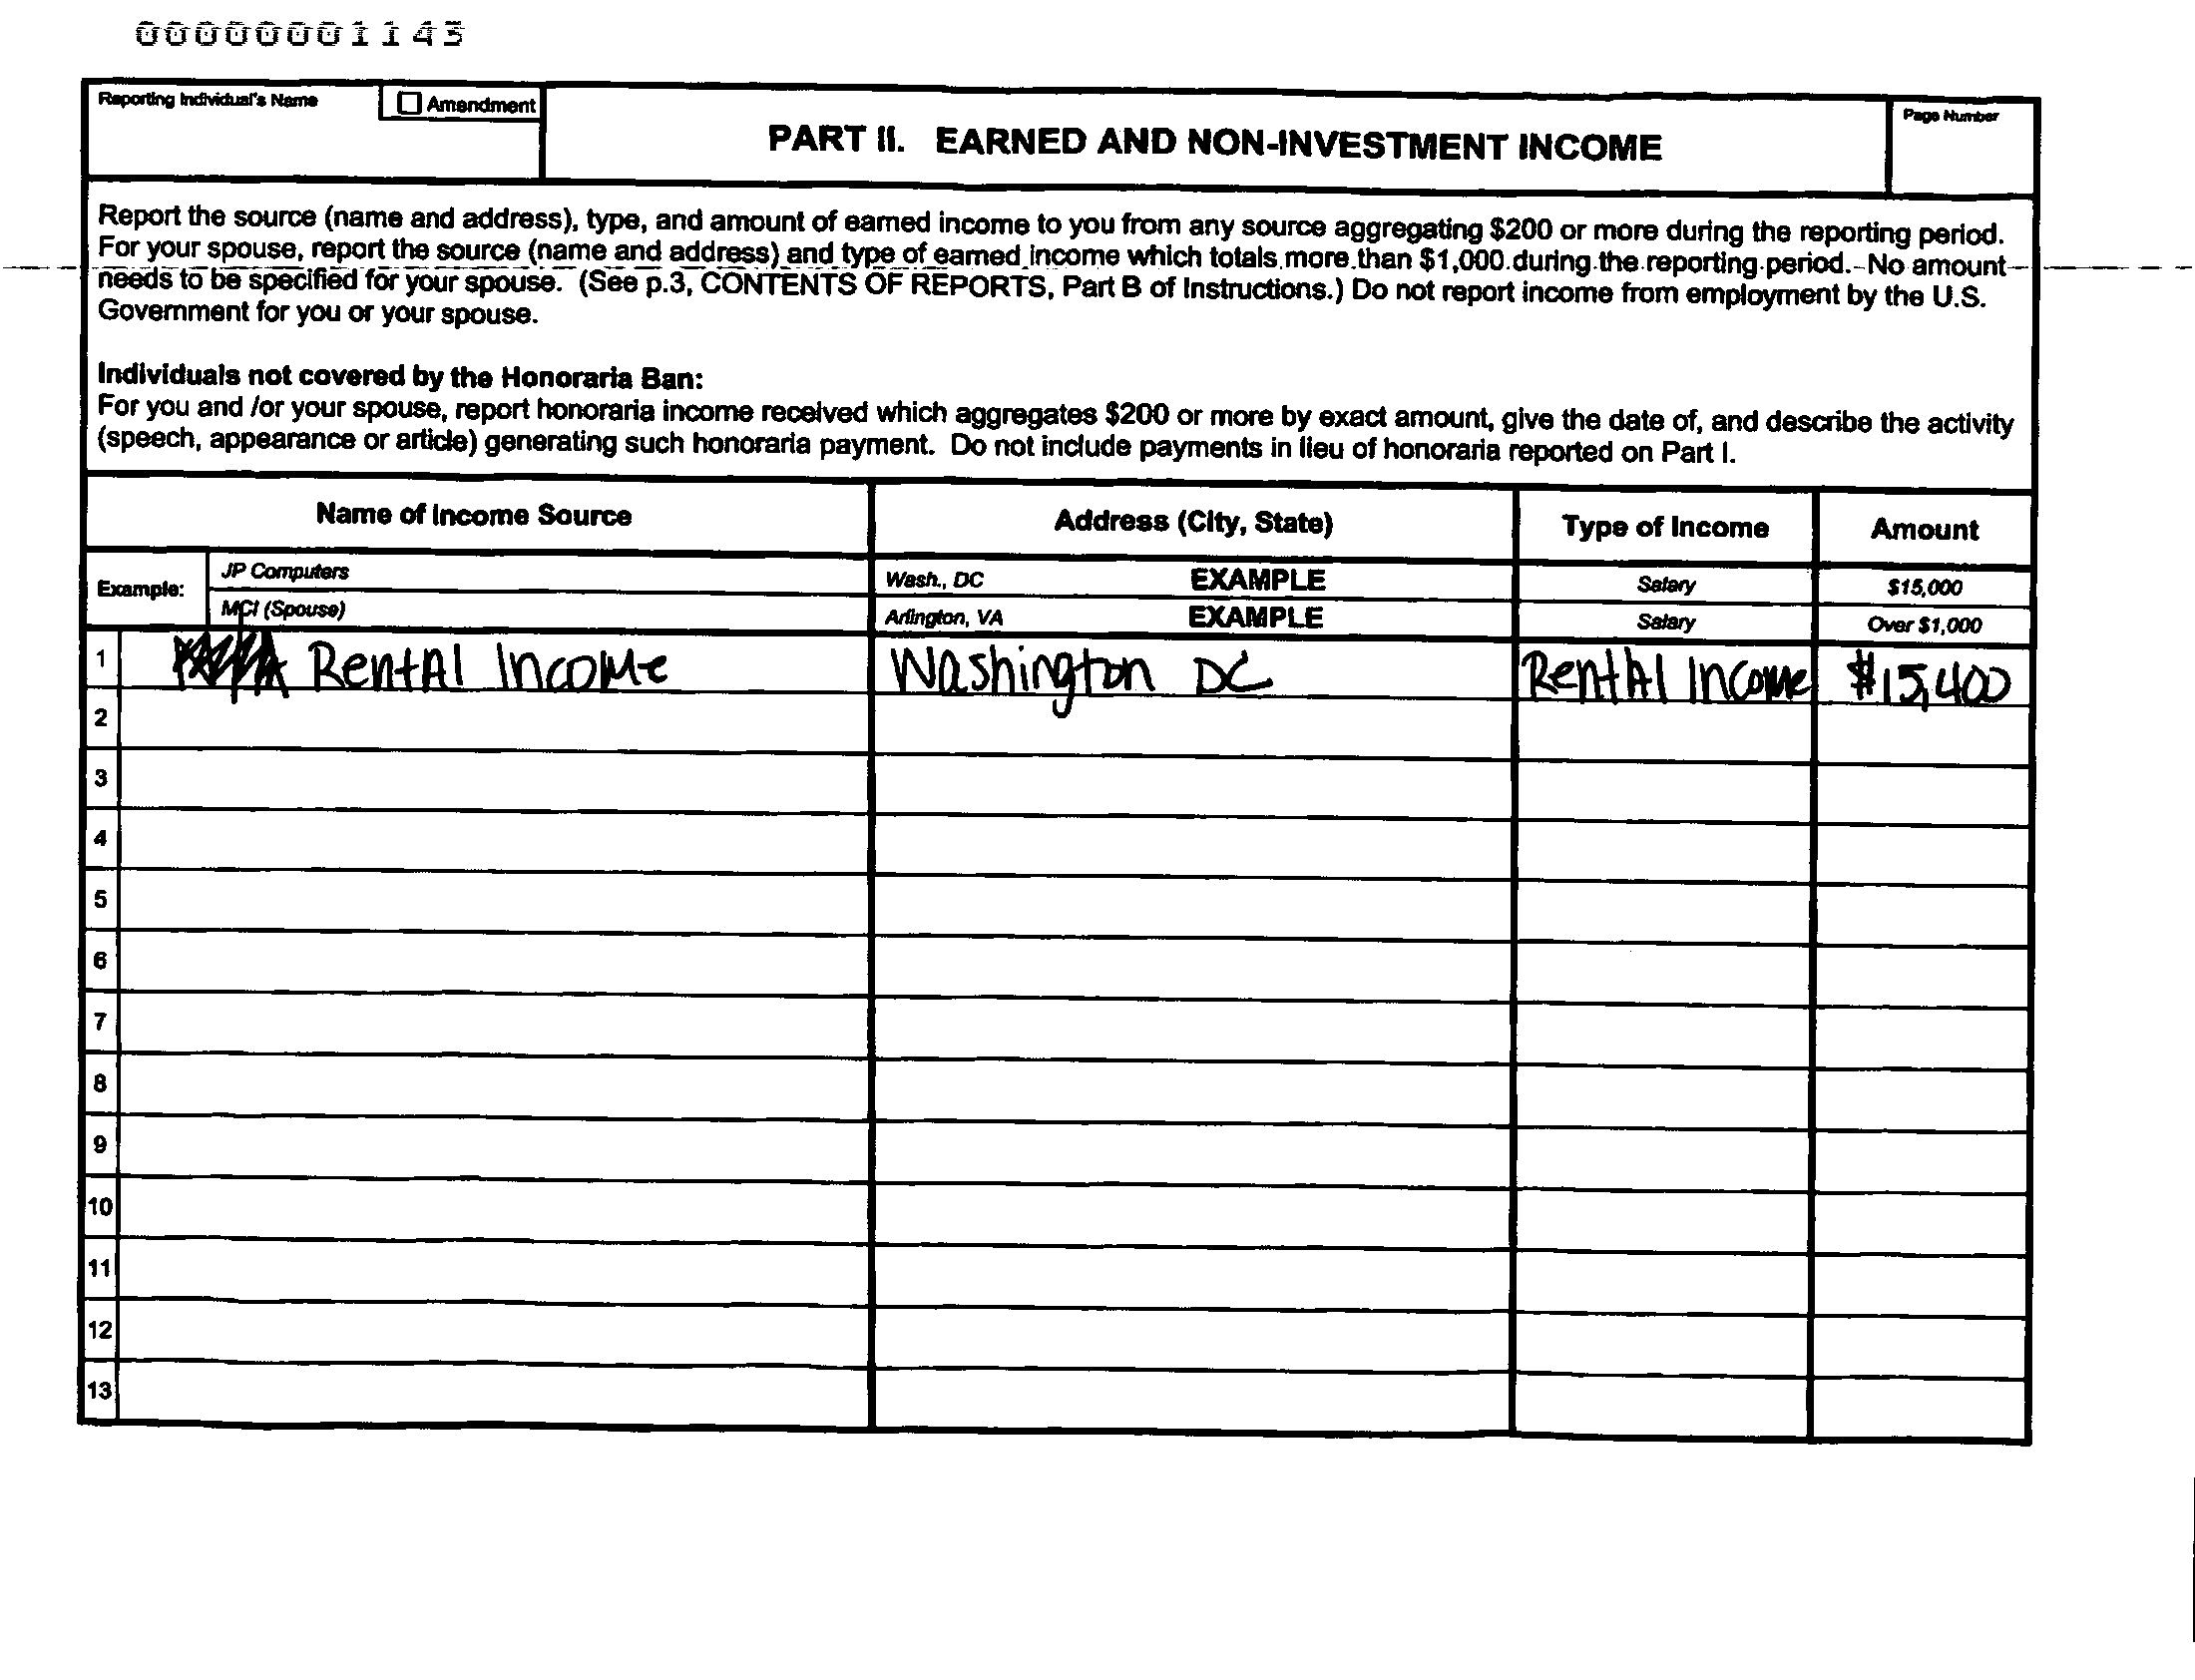 00000001145
Reporting Individual's Name
Amendment
PART II. EARNED AND NON-INVESTMENT INCOME
Page Number
Report the source (name and address), type, and amount of earned income to you from any source aggregating $200 or more during the reporting period.
For your spouse, report the source (name and address) and type of earned income which totals more than $1,000 during the reporting period. No amount
needs to be specified for your spouse. (See p.3, CONTENTS OF REPORTS, Part B of Instructions.) Do not report income from employment by the U.S.
Government for you or your spouse.
Individuals not covered by the Honoraria Ban:
For you and /or your spouse, report honoraria income received which aggregates $200 or more by exact amount, give the date of, and describe the activity
(speech, appearance or article) generating such honoraria payment. Do not include payments in lieu of honoraria reported on Part I.
Name of Income Source Address (City, State) Type of Income Amount
Example: JP Computers Wash., DC EXAMPLE Salary $15,000
MCI (Spouse) Arlington, VA EXAMPLE Salary Over $1,000
1 Rental Income Washington DC Rental Income $15,400
2
3
4
5
6
7
8
9
10
11
12
13